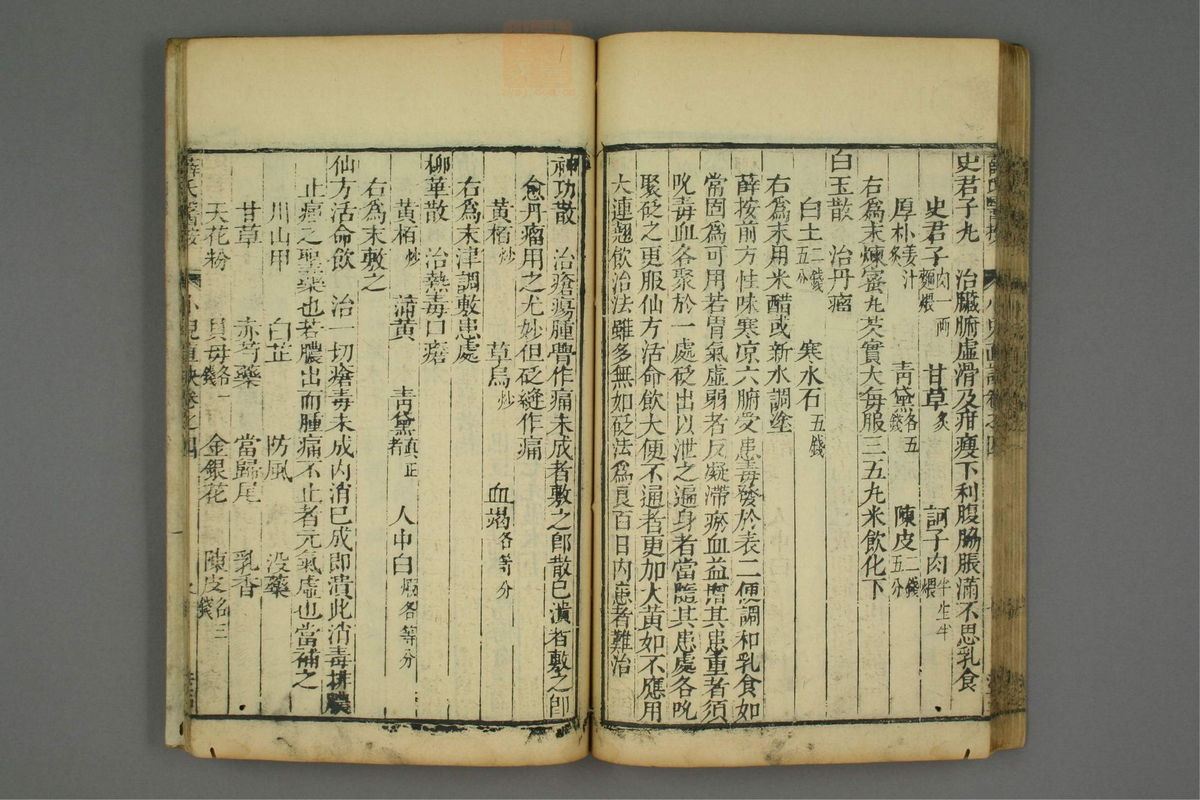 史君子丸 治臟腑虛滑及疳瘦下利腹脇脹滿不思乳食
史君子肉一兩麵煨 甘草炙 訶子肉半生半煨
厚朴姜汁炙 青黛各五錢 陳皮二錢五分
右爲末煉蜜丸芡實大每服三五丸米飲化下
白玉散 治丹瘤
白土二錢五分 寒水石五錢
右爲末用米醋或新水調塗
薛按前方性味寒凉六腑受患毒發於表二便調和乳食如
常固爲可用若胃氣虛弱者反凝滯瘀血益增其患重者須
吮毒血各聚於一處砭出以泄之遍身者當隨其患處各吮
聚砭之更服仙方活命飲大便不通者更加大黃如不應用
大連翹飲治法雖多無如砭法爲良百日內患者難治
神功散 治瘡瘍腫㿈作痛未成者敷之卽散已潰者敷之卽
愈丹瘤用之尤妙但砭縫作痛
黃栢炒 草烏炒 血竭各等分
右爲末津調敷患處
柳華散 治熱毒口瘡
黃栢炒 蒲黃 青黛眞正者 人中白煆各等分
右爲末敷之
仙方活命飲 治一切瘡毒未成內消已成卽潰此消毒排膿
止痛之聖藥也若膿出而腫痛不止者元氣虛也當補之
川山甲 白芷 防風 没藥
甘草 赤芍藥 當歸尾 乳香
天花粉 貝母各一錢 金銀花 陳皮各三錢
薛氏醫按 小兒直訣卷之四